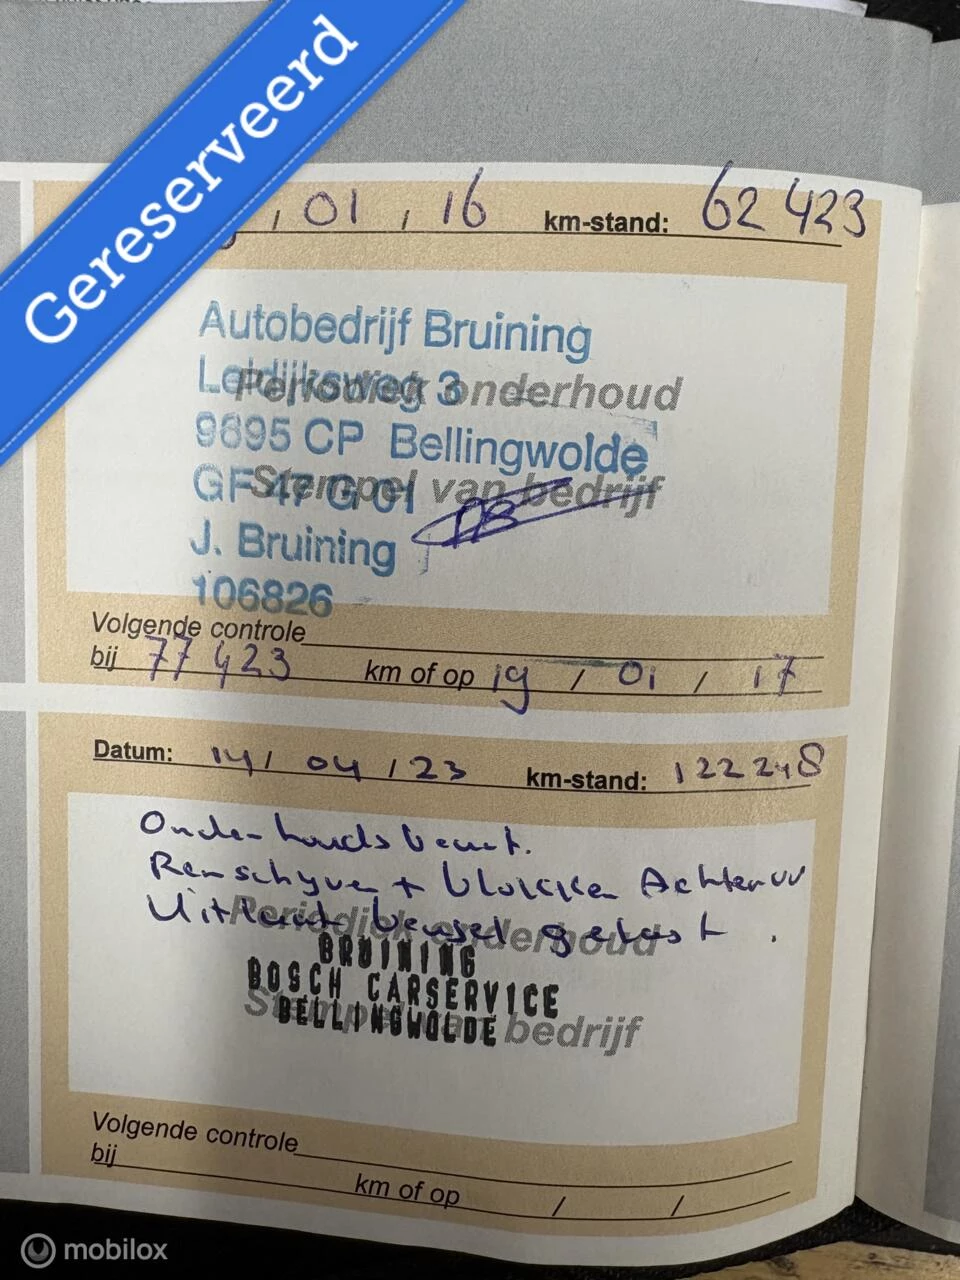 Gereserveerd
/ 01 / 16 km-stand: 62 423
Periodiek onderhoud
Stempel van bedrijf
Autobedrijf Bruining
3
9695 CP Bellingwolde
GF 47 G 01
J. Bruining
106826
Volgende controle
bij 77 423 km of op 19 / 01 / 17
Datum: 14 / 04 / 23 km-stand: 122 248
Onderhoudsbeurt.
Remschyven + blokken Achter
Uitlaat gelast .
Periodiek onderhoud
Stempel van bedrijf
BRUINING
BOSCH CARSERVICE
BELLINGWOLDE
Volgende controle
bij
km of op / /
mobilox